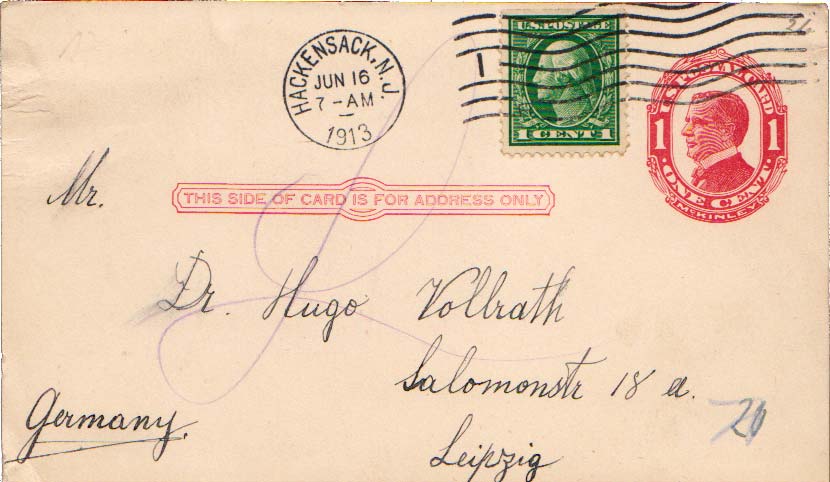 HACKENSACK, N.J.
JUN 16
7-AM
1913
1
U.S. POSTAGE
1 CENT 1
U.S. POSTAL CARD
1 1
ONE CENT
McKINLEY
Mr.
THIS SIDE OF CARD IS FOR ADDRESS ONLY
Dr. Hugo Vollrath
Salomonstr 18 a.
Germany.
Leipzig
20